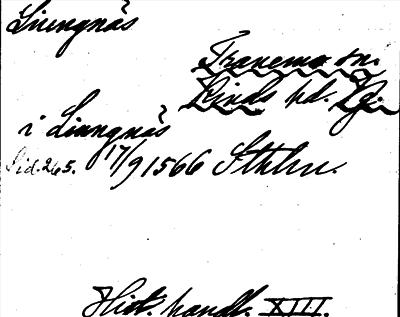 Liungnäs
Tranemo sn.
Kinds hd. Vg.
i Liungnäs
Sid. 265. 17/9 1566 Sthlm.
Hist. handl. XIII.